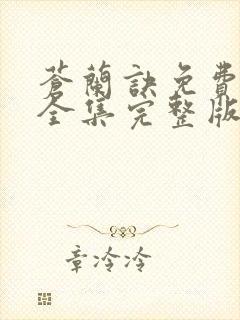 蒼蘭訣免費
全集完整版
章冷冷